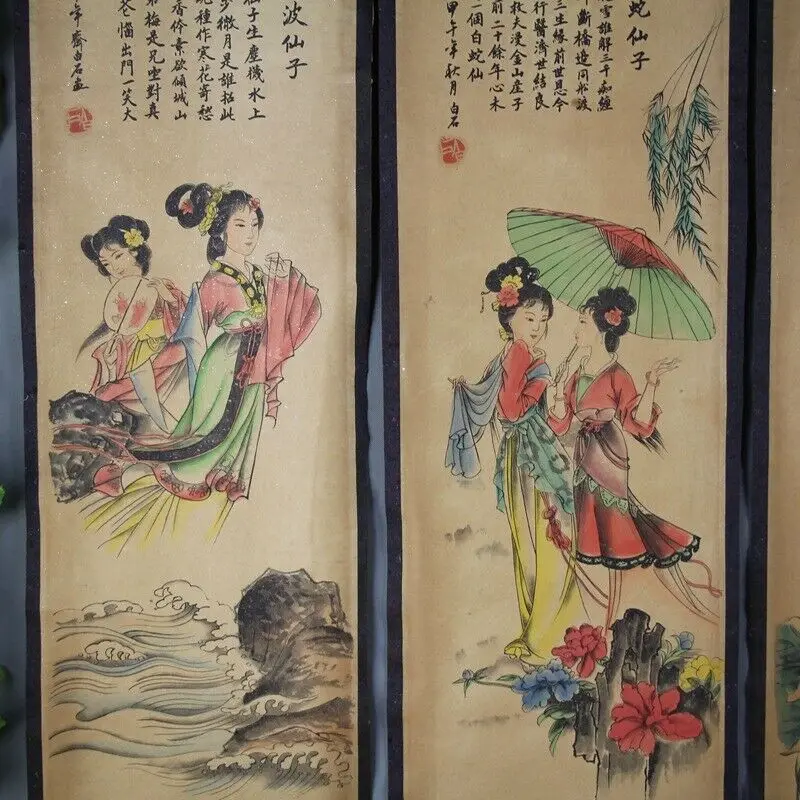 波仙子
仙子生塵襪水上
步微月是誰招此
種作寒花寄愁
香体素欲傾城山
梅是兄坐對真
惱出門一笑大
年齋白石畫
蛇仙子
雪誰解三千痴纏
斷橋邊同舟渡
三生緣前世恩今
行醫濟世結良
救夫漫金山崖子
前二十餘年心未
一個白蛇仙
甲午年秋月白石